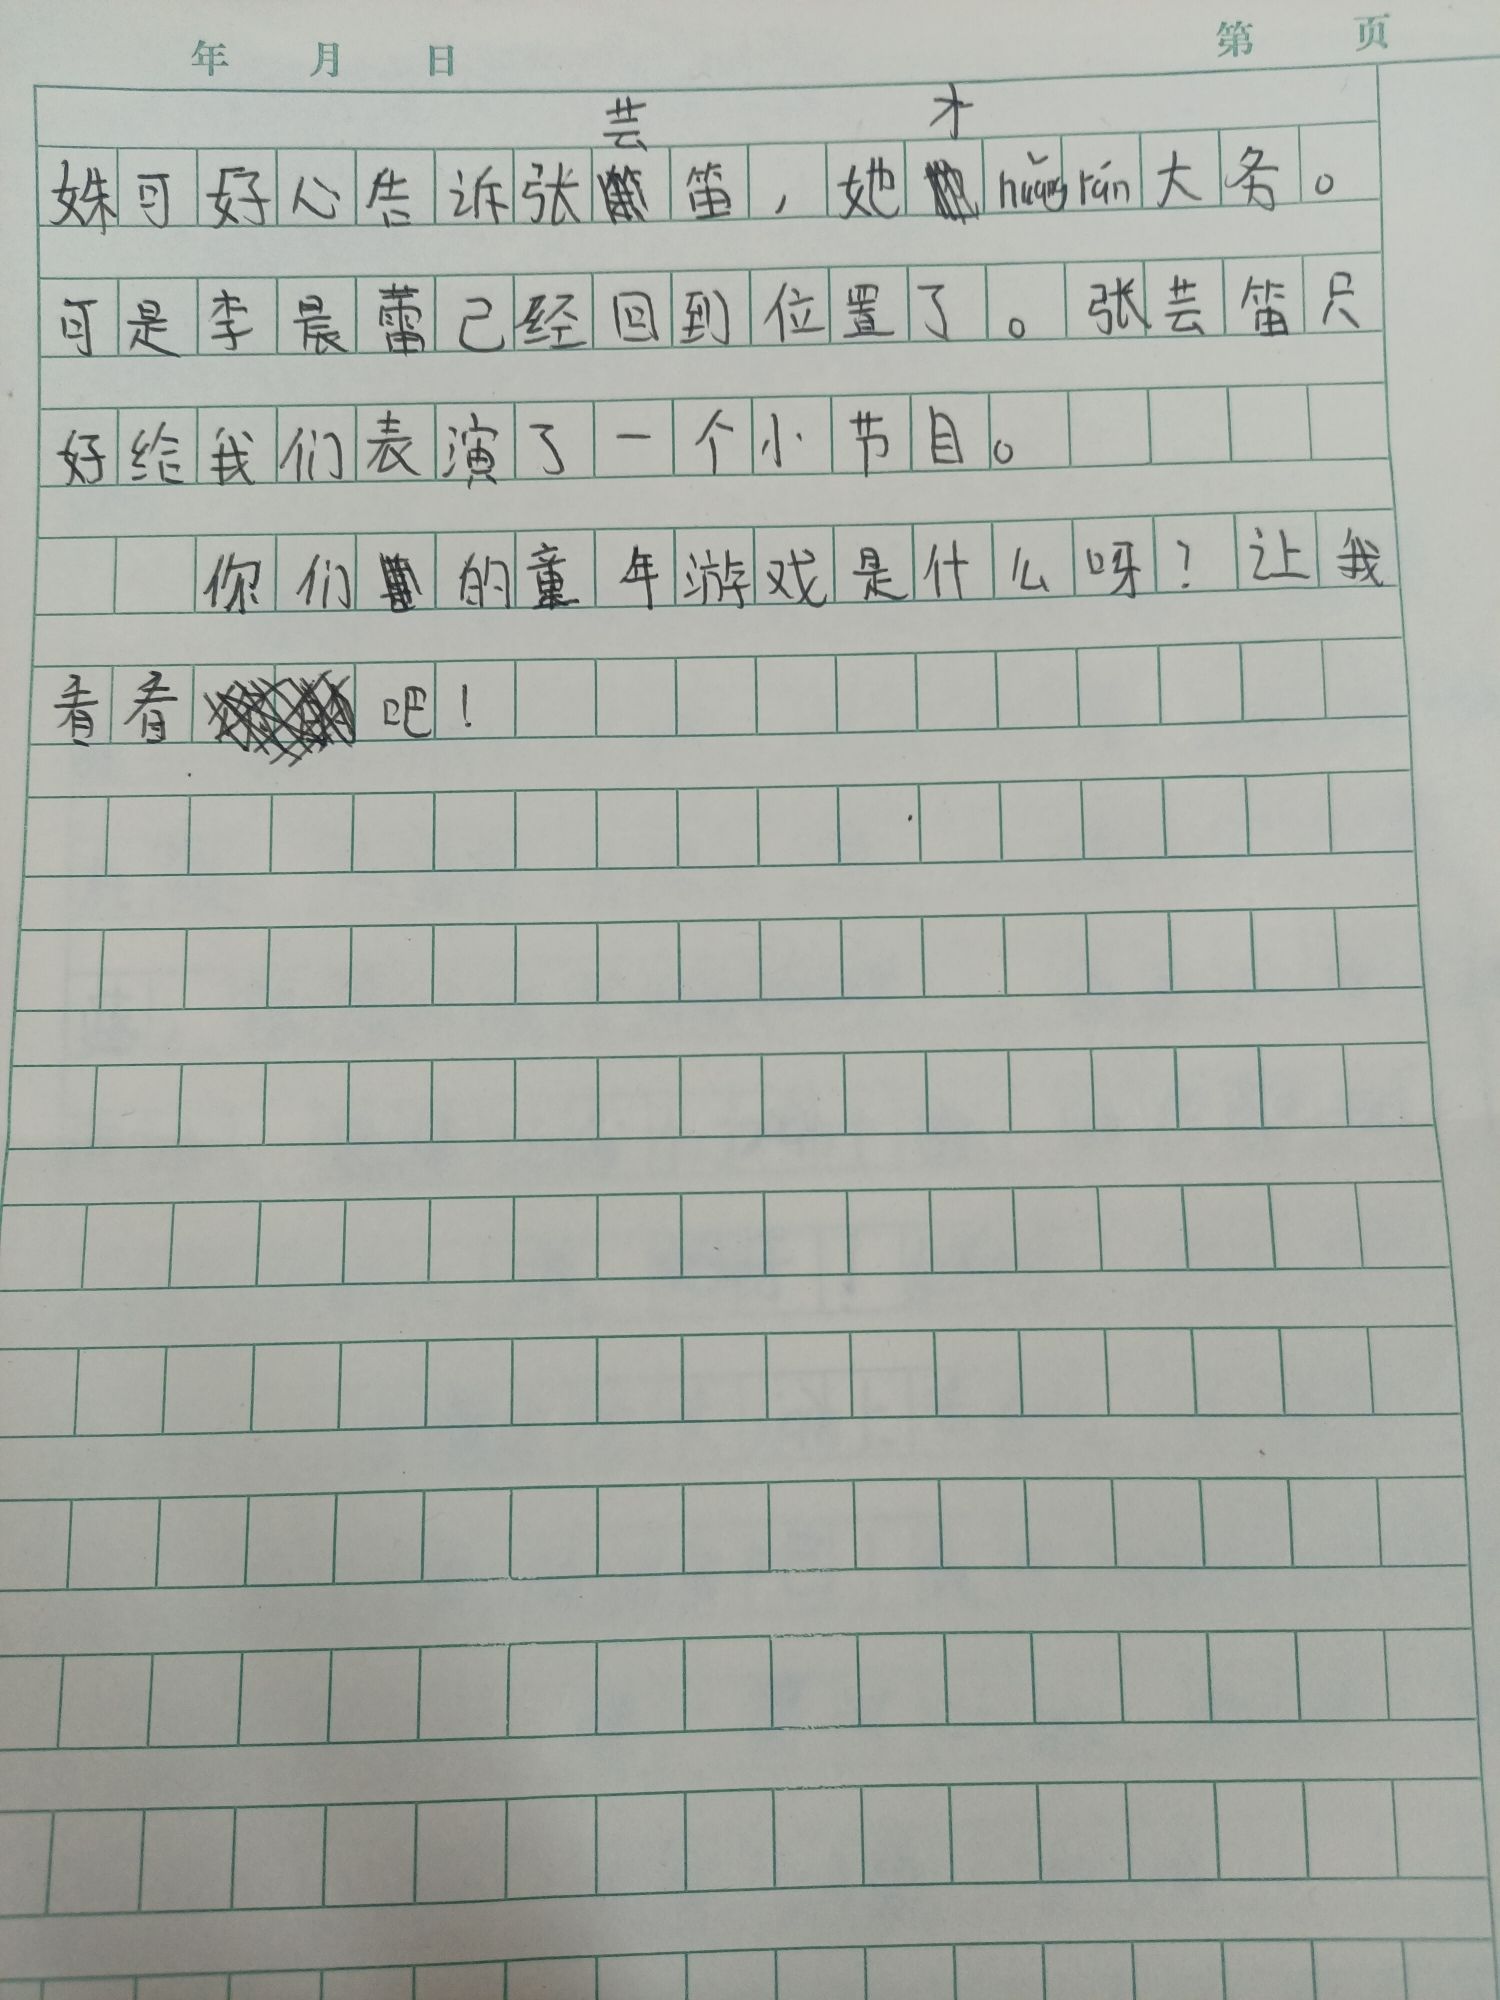 年 月 日 第 页
芸 才
姝可好心告诉张笛，她huǎngrán大务。
可是李晨蕾己经回到位置了。张芸笛只
好给我们表演了一个小节目。
你们的童年游戏是什么呀？让我
看看吧！